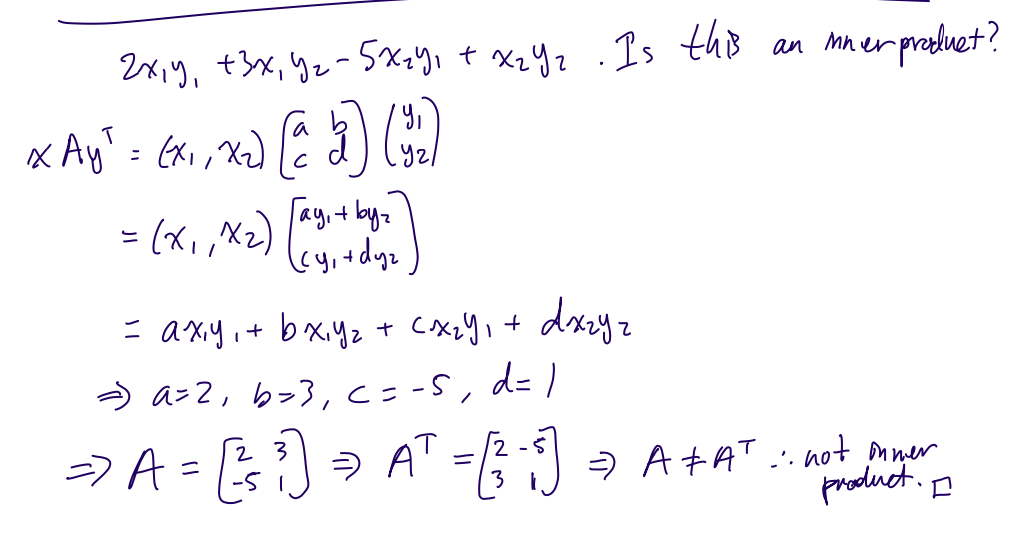 2x₁y₁ + 3x₁y₂ - 5x₂y₁ + x₂y₂ . Is this an inner product?
xAyᵀ = (x₁, x₂) [a b; c d] (y₁; y₂)
= (x₁, x₂) [ay₁ + by₂; cy₁ + dy₂]
= ax₁y₁ + bx₁y₂ + cx₂y₁ + dx₂y₂
⇒ a=2, b=3, c=-5, d=1
⇒ A = [2 3; -5 1] ⇒ Aᵀ = [2 -5; 3 1] ⇒ A ≠ Aᵀ ∴ not inner product. □